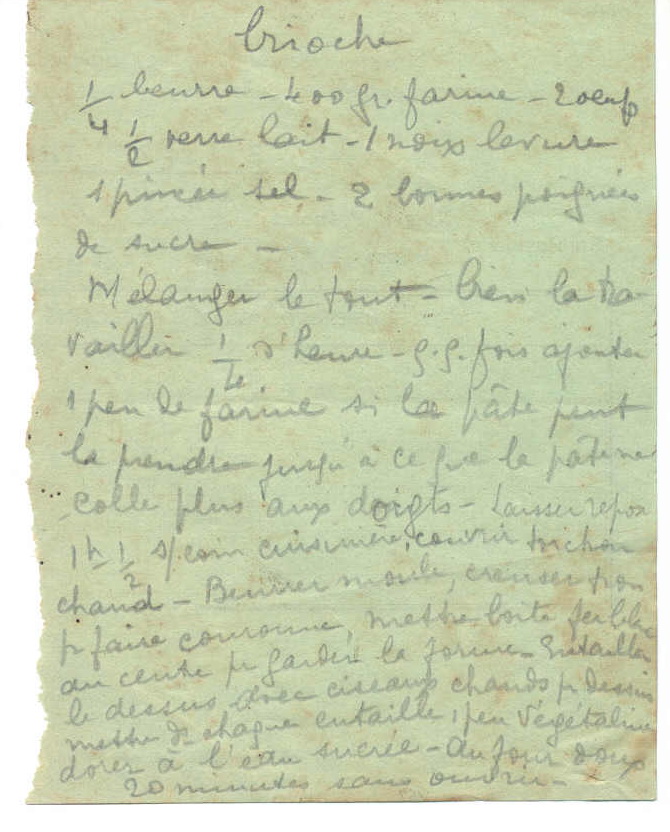 Brioche
1/4 beurre - 400 gr. farine - 2 oeufs
1/2 verre lait - 1 noix levure
1 pincée sel - 2 bonnes poignées
de sucre -
Mélanger le tout - bien la tra-
vailler 1/4 d'heure - q.q. fois ajouter
1 peu de farine si la pâte peut
la prendre jusqu'à ce que la pâte ne
colle plus aux doigts - Laisser repos
1h 1/2 s/ coin cuisinière, couvrir torchon
chaud - Beurrer moule, creuser trou
pr faire couronne, mettre boîte fer blanc
au centre pr garder la forme - Entailler
le dessus avec ciseaux chauds pr dessin
mettre ds chaque entaille, 1 peu végétaline
dorer à l'eau sucrée - du four doux
20 minutes sans ouvrir -